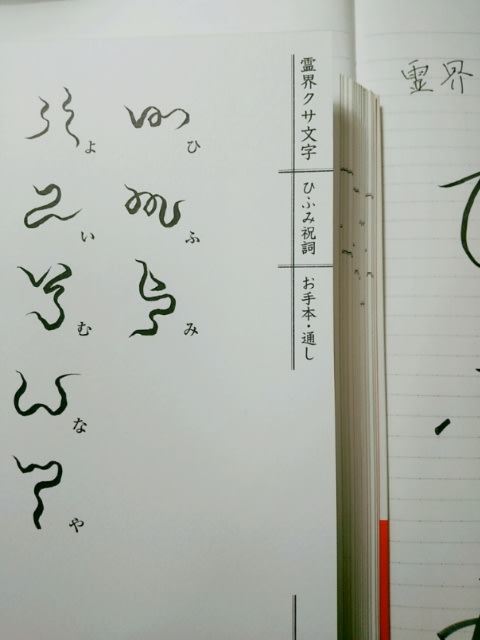 霊界クサ文字
ひふみ祝詞
お手本・通し
ひ
ふ
み
よ
い
む
な
や
霊界